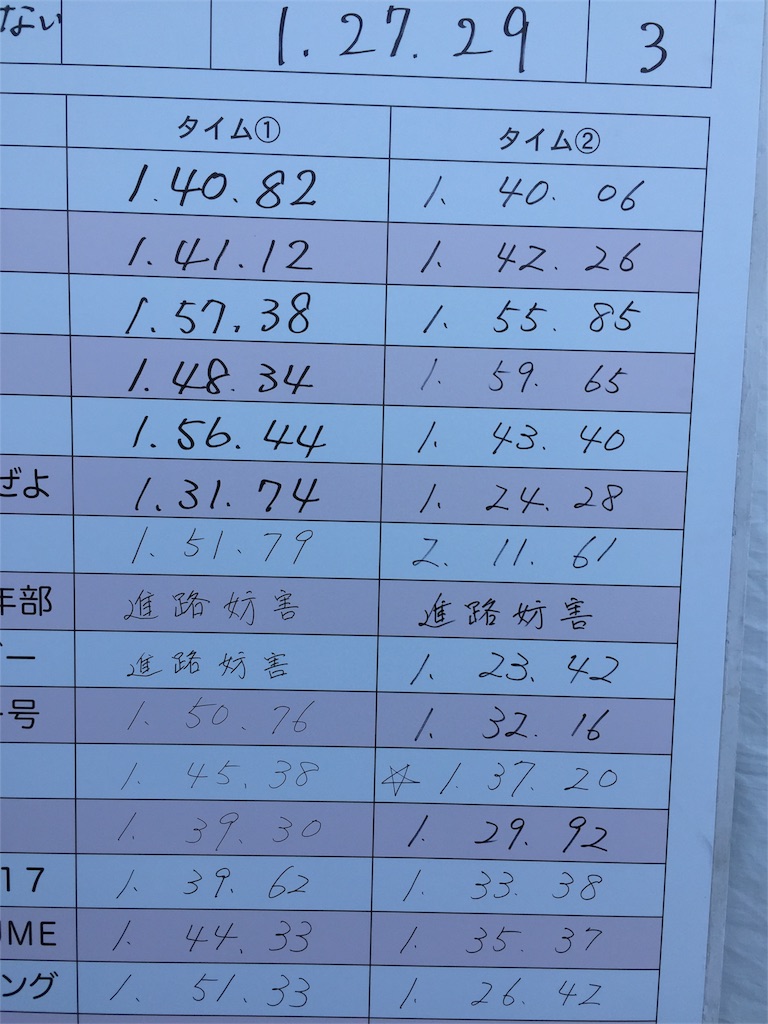 ない 1.27.29 3
タイム① タイム②
1.40.82 1. 40. 06
1.41.12 1. 42. 26
1.57.38 1. 55. 85
1.48.34 1. 59. 65
1.56.44 1. 43. 40
ぜよ 1.31.74 1. 24. 28
1. 51. 79 2. 11. 61
年部 進路妨害 進路妨害
ー 進路妨害 1. 23. 42
号 1. 50. 76 1. 32. 16
1. 45. 38 ☆ 1. 37. 20
1. 39. 30 1. 29. 92
17 1. 39. 62 1. 33. 38
UME 1. 44. 33 1. 35. 37
ング 1. 51. 33 1. 26. 42